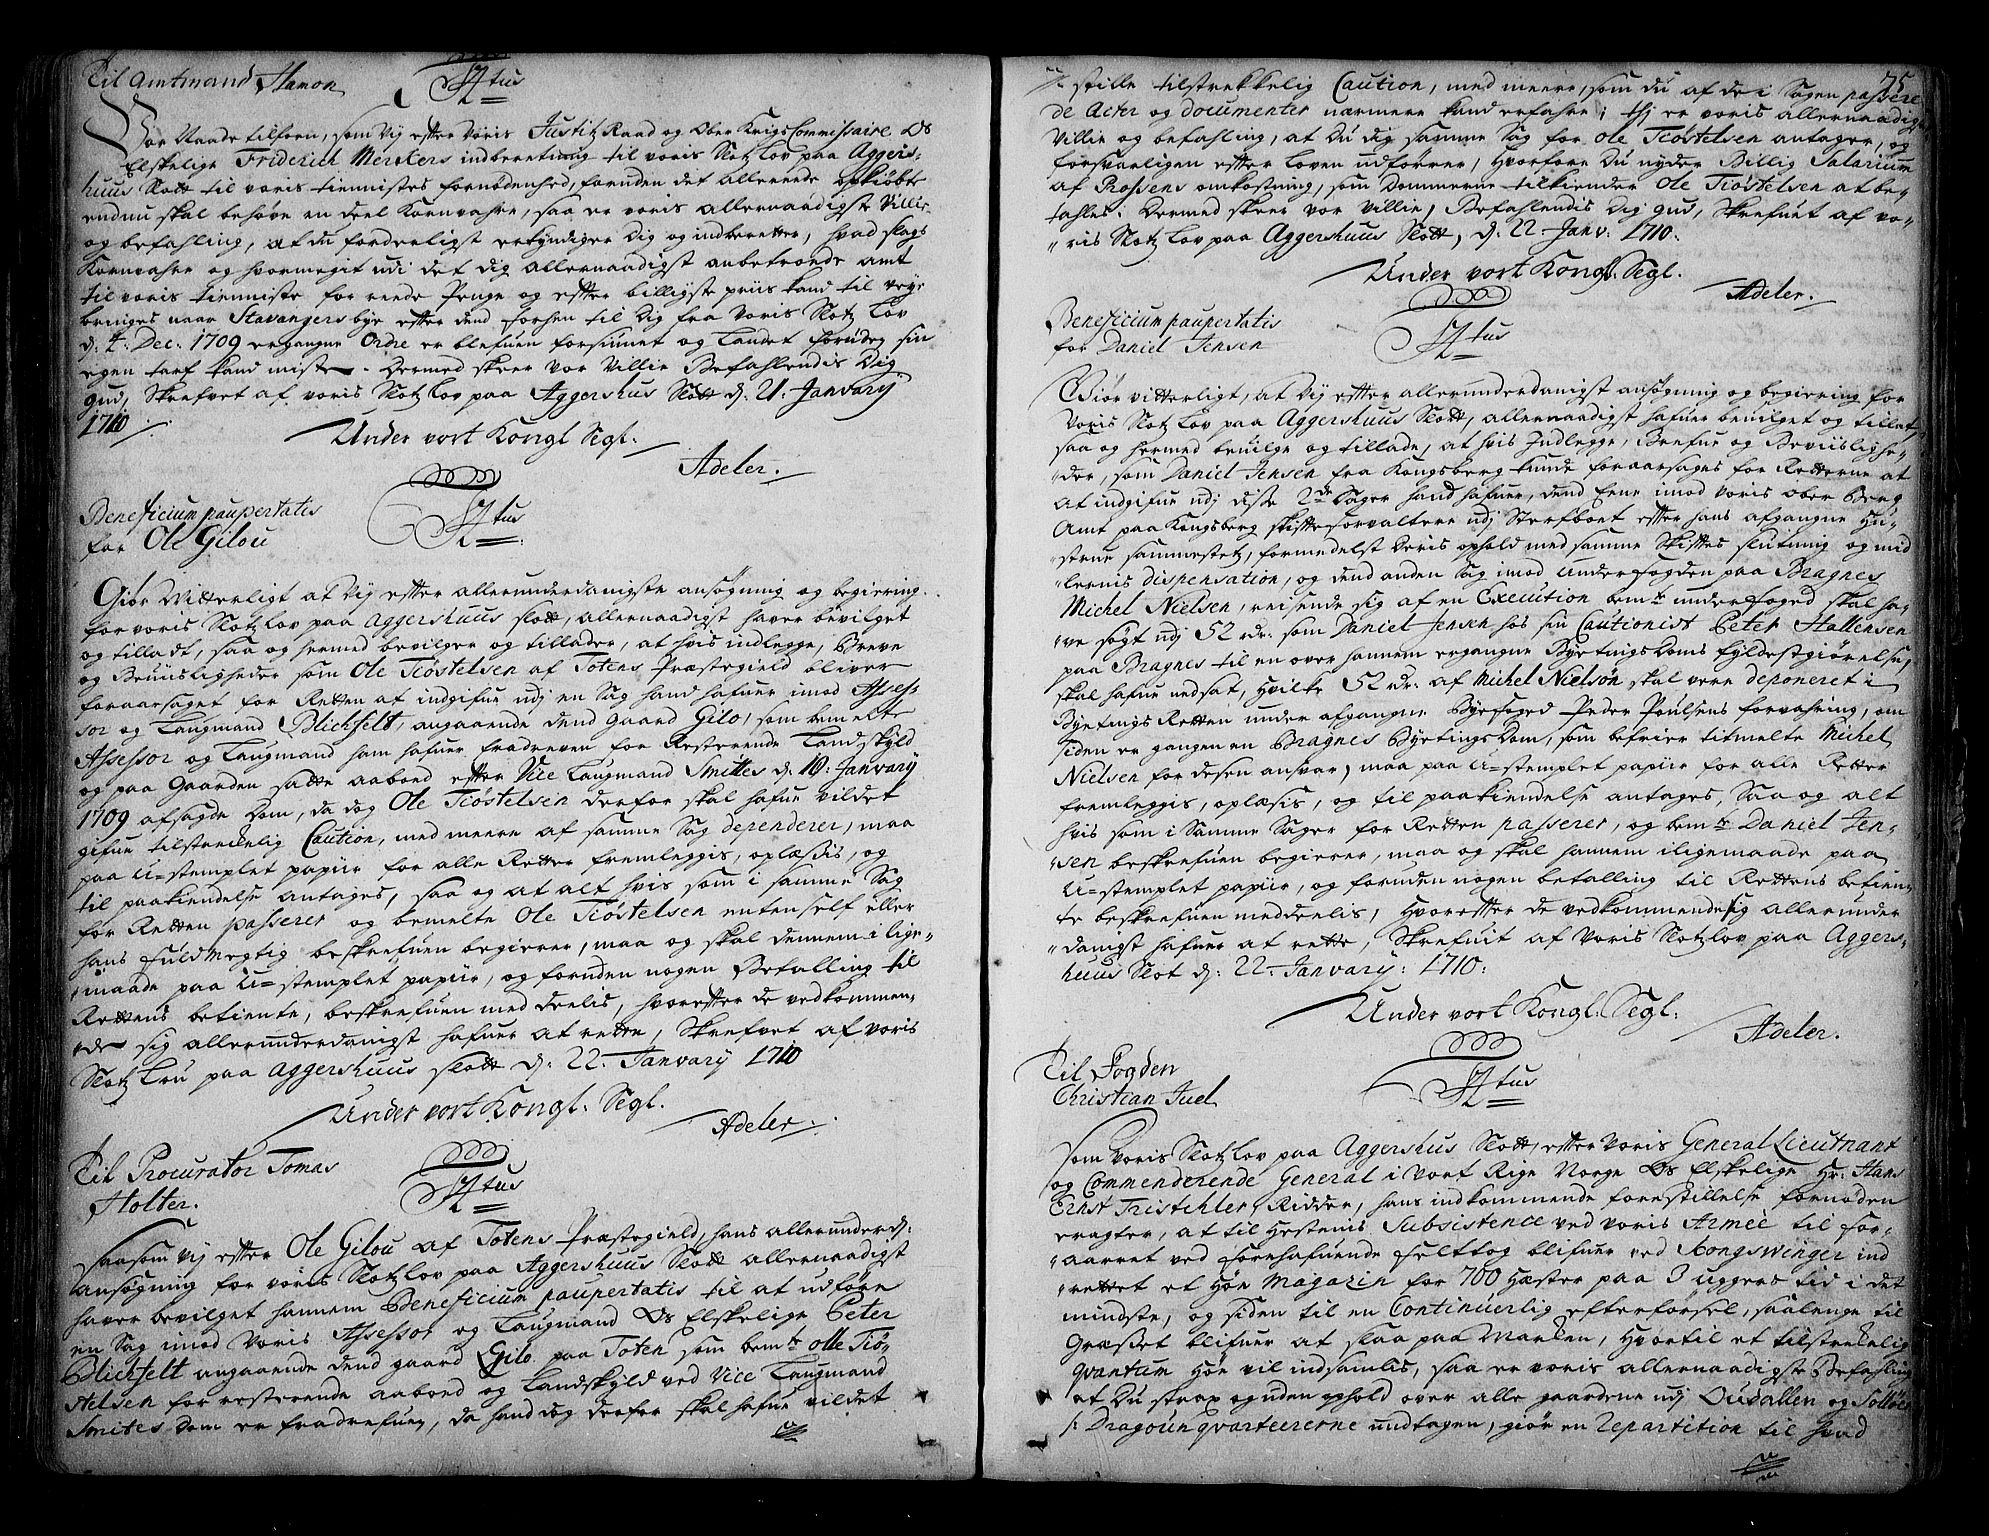 Til Amtmand Hamon
F4tus
Vor Naade tilforn, som Vij efter Voris Justitz Raad og Ober Krigs Commissaire Os
Elskelige Friderich Merckers indberetning til voris Slotz Lov paa Aggers-
huus Slott til voris tiennistes fornødenhed, foruden det allerede opkiøbte
endnu skal behøve en deel Kornvahre, saa er voris allernaadigste Villie
og befahling, at du forderligst erkyndiger dig og indberetter, hvad slags
Kornvahre og hvormegit udi det dig allernaadigst anbetroede amt
til voris tienniste for reede Penge og efter billigste priis kand til veye
bringes naar Stavangers bye efter dend forhen til Dig fra Voris Slotz Lov
d: 4: Dec: 1709 ergangne Ordre er blefuen forsiunet og Landet foruden sin
egen tarf kand miste. Dermed skeer vor Villie Befahlendis Dig
gud, Skrefvet af voris Slotz Lov paa Aggershus Slott d: 21. January
1710
Under vort Kongl Segl.
Adeler.
Beneficium paupertatis
for Ole Gilou
F4tus
Giør Witterligt at Vij efter allerunderdanigste ansøgning og begiering
for voris Slotz Lov paa Aggershuus slott, allernaadigst haver bevilget
og tilladt, saa og hermed bevilger og tillader, at hvis indlegge, Breve
og Beviisligheder som Ole Tiøstelsen af Totens Præstegield bliver
foraarsaget for Retten at indgifue udj en Sag hand hafuer imod Asses-
sor og Laugmand Blichfelt, angaaende dend gaard Gilo, som bemelte
Assessor og Laugmand ham hafuer fradreven for Resterende Landskyld
og paa Gaarden satte aaboed efter Vice Laugmand Smittes d. 10: January
1709 afsagde Dom, da dog Ole Tiøstelsen derfor skal hafue vildet
gifue tilstreckelig Caution, med meere af samme Sag dependerer, maa
paa U-stemplet papiir for alle Retter fremleggis, oplæsis, og
til paakiendelse antages, saa og at alt hvis som i samme Sag
for Retten passerer og bemelte Ole Tiøstelsen entenself eller
hans fuldmegtig beskrefuen begierer, maa og skal dennem i lige-
maade paa U-stemplet papiir, og foruden nogen Befalling til
Rettens betiente, beskrefuen med deelis, hvorefter de vedkommen-
de sig allerunderdanigst hafuer at rette, Skrefvet af voris
Slotz Lou paa Aggershuus slott d: 22. January 1710
Under vort Kongl: Segl.
Adeler.
Til Procurator Tomas
Holter.
F4tus
Saasom vij efter Ole Gilou af Totens Præstegield, hans allerunderd:
ansøgning for voris Slotz Lov paa Aggershuus Slott allernaadigst
haver bevilget hannem Beneficium paupertatis til at udføre
en Sag imod Voris Assessor og Laugmand Os Elskelige Peter
Blichfelt angaaende dend gaard Gilo paa Toten som bemte olle Tiø-
stelsen for resterende aaboed og Landskyld ved Vice Laugmand
Smites Dom er fradrefuen, da hand dog derfor skal hafue vildet
75
stille tilstrekkelig Caution, med meere, som du af de i Sagen passere
de Acter og documenter nærmere kand erfahre; thj er voris allernaadigste
Villie og befahling, at Du dig samme Sag for Ole Tiøstelsen antager, og
forsvarligen efter loven udfører, hvorfore Du nyder Billig Salarium
af Processens omkostning, som Dommerne tilkiender Ole Tiøstelsen at be-
tahles. Dermed skeer vor villie, Befahlendis Dig gud, Skrefuet af vo-
ris Slotz Lov paa Aggershuus Slott, d: 22 Janv: 1710.
Under vort Kongl: Segl.
Adeler.
Beneficium paupertatis
for Daniel Jensen
F4tus
Giør vitterligt, at Vij efter allerunderdanigst ansøgning og begiering for
Voris Slotz Lov paa Aggershuus Slott, allernaadigst hafuer beuilget og tilladt,
saa og hermed beuilge og tillade, at hvis Indlegge, Brefue og Beviislighe-
der, som Daniel Jensen fra Kongsberg kunde foraarsages for Retterne at
at indgifue udj disse 2de Sager hand hafuer, dend Eene imod Voris ober Berg
Amt paa Kongsberg skifteforvaltere udj Sterfboet efter hans afgangne Hu-
strue sammestetz, formedelst deris ophold med samme Skiftes slutning og mid
lernis dispensation, og dend anden Sag imod Underfogden paa Bragnes
Michel Nielsen, reisende sig af en Execution bemte underfoged skal ha-
ve søgt udj 52 rdr: som Daniel Jensen hos sin Cautionist Peter Hallensen
paa Bragnes til en over hannem ergangne Byetings Doms fyldestgiørelse,
skal hafue nedsat, hvilke 52 rdr: af Michel Nielsøn skal vere deponeret i
Byetings Retten under afgangne Byefoged Peder Poulsens forvahring, om
siden er gangen en Bragnes Byetings Dom, som befrier titmelte Michel
Nielsen for desen ansvar, maa paa U-stemplet papiir for alle Retter
fremleggis, oplæsis, og til paakiendelse antages, Saa og alt
hvis som i Samme Sager for Retten passerer, og bemte Daniel Jen-
sen beskrefuen begierer, maa og skal hannem iligemaade paa
U-stemplet papiir, og foruden nogen betalling til Rettens betien-
te beskrefuen meddeelis, hvorefter de vedkommende sig allerunder
danigst hafuer at rette, Skrefuit af Voris Slotz Lov paa Aggers-
huus Slot d: 22. January: 1710:
Under vort Kongl: Segl:
Adeler.
Til Fogden
Christian Juel
F4tus
Som Voris Slotz Lov paa Aggershus Slott, efter Voris General Lieutnant
og Commenderende General i Vort Rige Norge Os Elskelige Hr: Hans
Ernst Tristchler, Ridder, hans indkommende forestillelse fornøden
eragter, at til Hestenis Subsistence ved voris Armee til for-
aarret ved forehafuende felttog blifuer ved Kongswinger ind
rettet et Høe Magazin for 700 Hæster paa 3 uggers tid i det
mindste, og siden til en Continuerlig efterforsel, saalenge til
Græsset blifuer at slaa paa Marken, hvortil et tilstrekelig
quantum Høe vil indsamlis, saa er voris allernaadigste Befahling
at Du strax og uden ophold over alle gaardene udj Oudallen og Solløer
/: Dragoun quarteererne undtagen, giør en Repartition til hvad